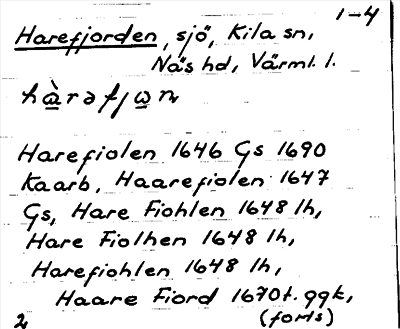 1-4
Harefjorden, sjö, Kila sn,
Näs hd, Värml. l.
hàrəfjωn
Harefiolen 1646 Gs 1690
Kaarb, Haarefiolen 1647
Gs, Hare Fiohlen 1648 lh,
Hare Fiolhen 1648 lh,
Harefiohlen 1648 lh,
Haare Fiord 1670t. ggk,
2 (forts)